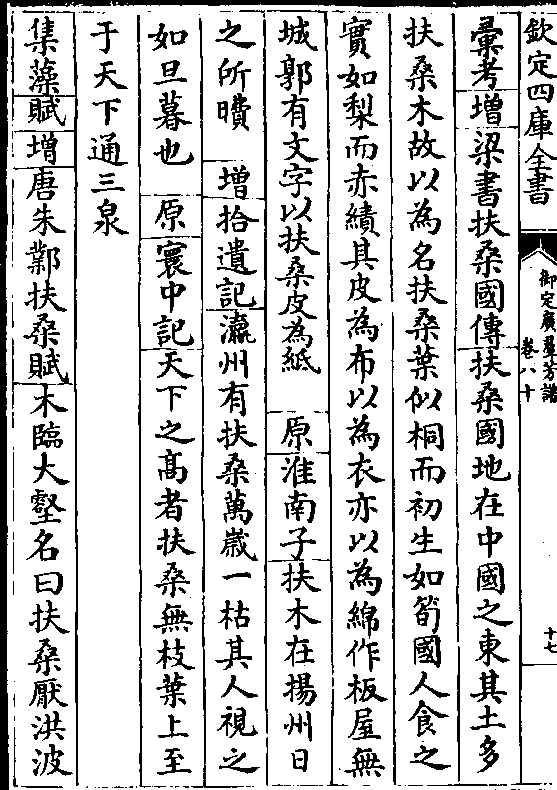 欽定四庫全書
御定廣羣芳譜
卷八十
十七
彚考增梁書扶桑國傳扶桑國地在中國之東其土多
扶桑木故以為名扶桑葉似桐而初生如筍國人食之
實如梨而赤績其皮為布以為衣亦以為綿作板屋無
城郭有文字以扶桑皮為紙　原淮南子扶木在揚州日
之所曊　增拾遺記瀛州有扶桑萬歲一枯其人視之
如旦暮也　原寰中記天下之髙者扶桑無枝葉上至
于天下通三泉
集藻賦增唐朱鄴扶桑賦木臨大壑名曰扶桑厭洪波